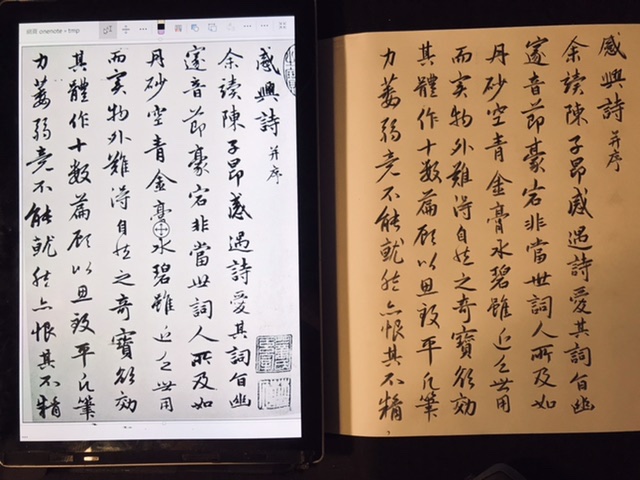 onenote › tmp
感興詩 并序
余讀陳子昂感遇詩愛其詞旨幽
邃音節豪宕非當世詞人所及如
丹砂空青金膏水碧雖近乏世用
而實物外難得自然之奇寶欲效
其體作十数篇顧以思致平凡筆
力萎弱竟不能就然亦恨其不精
感興詩 并序
余讀陳子昂感遇詩愛其詞旨幽
邃音節豪宕非當世詞人所及如
丹砂空青金膏水碧雖近乏世用
而實物外難得自然之奇寶欲效
其體作十数篇顧以思致平凡筆
力萎弱竟不能就然亦恨其不精